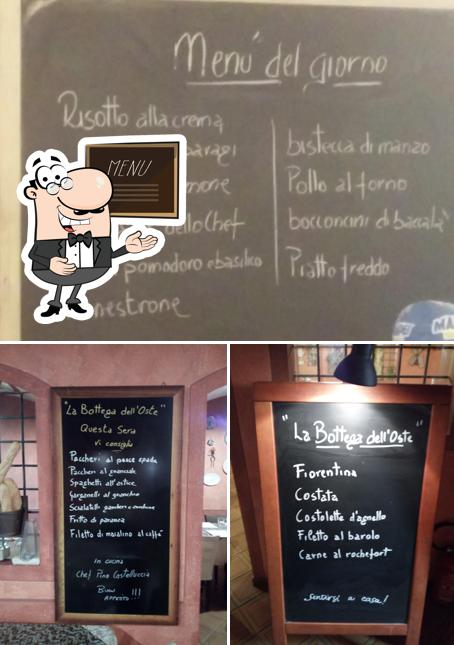 Menu' del giorno
Risotto alla crema
MENU
dello Chef
pomodoro e basilico
nestrone
bistecca di manzo
Pollo al forno
bocconcini di baccala'
Piatto freddo
"La Bottega dell'Oste"
Questa Sera
vi consiglia
Paccheri al pesce spada
Paccheri al guanciale
Spaghetti all'astice
Garganelli al granchio
Scialatielli gamberi e
Fritto di paranza
Filetto di maialino al caffè
in cucina
Chef Pino Castelluccia
Buon
Appetito!!!
"La Bottega dell'Oste"
Fiorentina
Costata
Costolette d'agnello
Filetto al barolo
Carne al rochefort
sentirsi a casa!